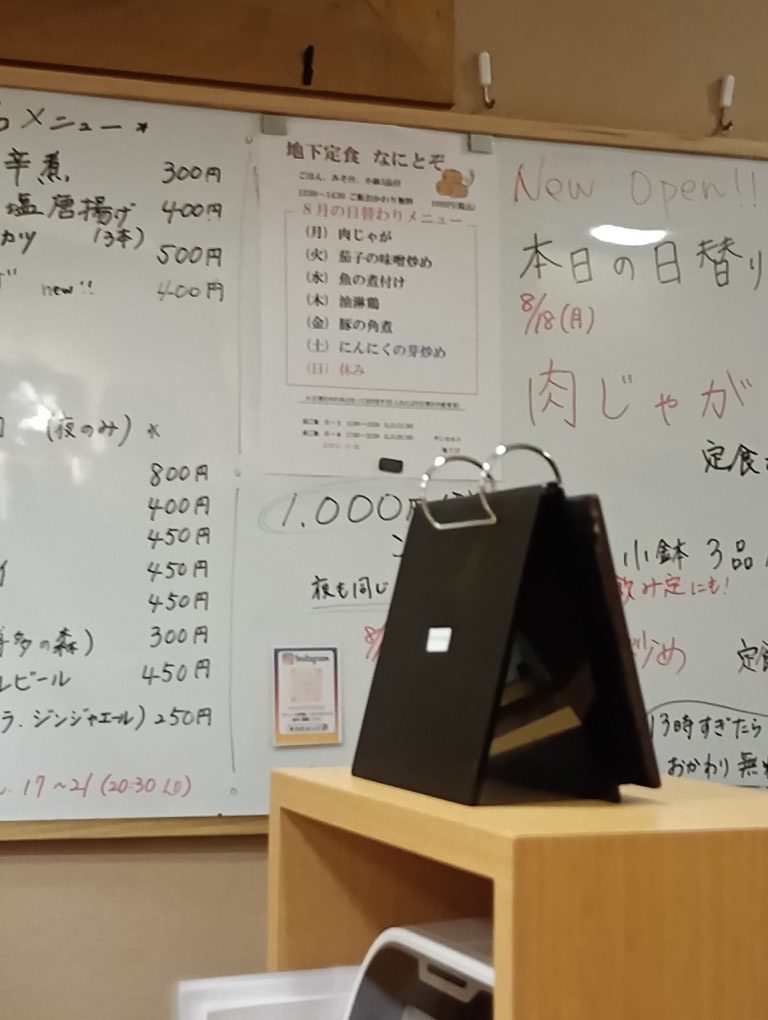 メニュー *
辛煮 300円
塩唐揚げ 400円
カツ (3本) 500円
new!! 400円
(夜のみ) *
800円
400円
450円
450円
450円
多の森) 300円
ビール 450円
ラ、ジンジャエール) 250円
17~21 (20:30 LO)
地下定食 なにとぞ
ごはん、みそ汁、小鉢3品付
8月の日替わりメニュー
(月) 肉じゃが
(火) 茄子の味噌炒め
(水) 魚の煮付け
(木) 油淋鶏
(金) 豚の角煮
(土) にんにくの芽炒め
(日) 休み
1.000円
夜も同じ
Instagram
New Open!!
本日の日替り
8/18(月)
肉じゃが
定食
小鉢 3品
飲み定にも!
炒め
定
13時すぎたら
おかわり無